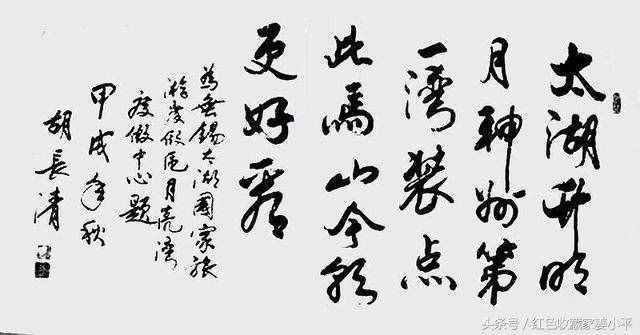 太湖升明
月神州第
一湾装点
此馬山今朝
更好看
為無錫太湖國家旅
游度假区月亮湾
度假中心題
甲戌年秋
胡長清
头条号 / 红色收藏家姜小平